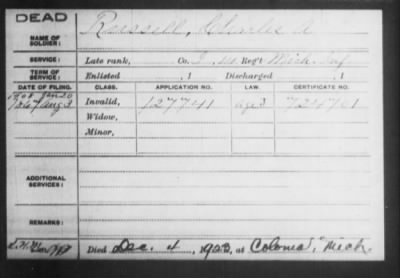 DEAD
NAME OF SOLDIER: Russell, Charles A
SERVICE: Late rank, Co. I, Reg't Mich. Inf
TERM OF SERVICE: Enlisted , 1 Discharged , 1
DATE OF FILING. CLASS. APPLICATION NO. LAW. CERTIFICATE NO.
Aug 3 Invalid, 127741
Widow,
Minor,
ADDITIONAL SERVICES:
REMARKS:
Died Dec. 4, 1923, at Coloma, Mich.